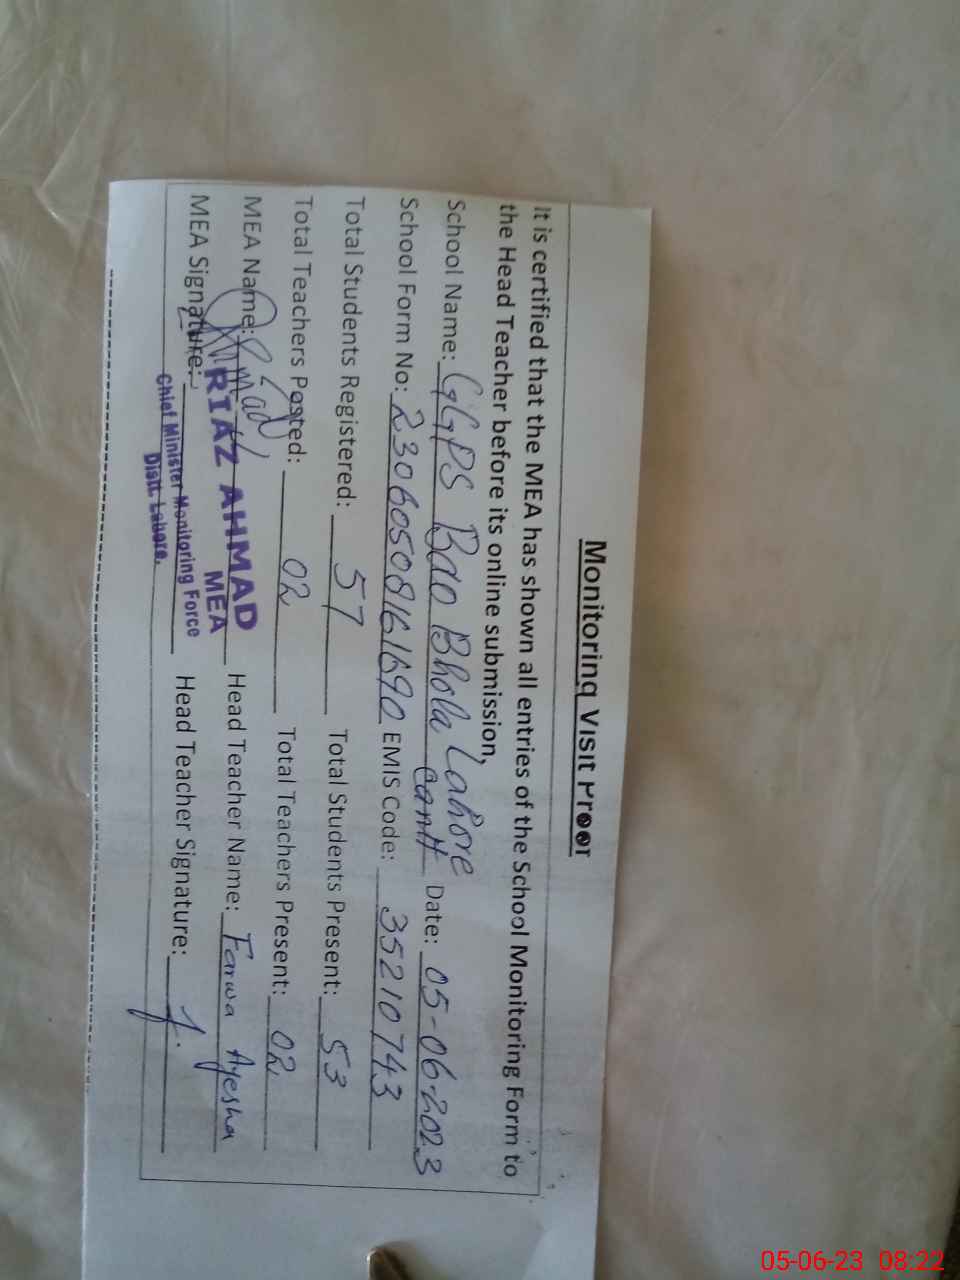 Monitoring Visit Proof
It is certified that the MEA has shown all entries of the School Monitoring Form to
the Head Teacher before its online submission,
School Name: GGPS Bao Bhola Lahore Cantt Date: 05-06-2023
School Form No: 23060508161690 EMIS Code: 35210743
Total Students Registered: 57 Total Students Present: 53
Total Teachers Posted: 02 Total Teachers Present: 02
MEA Name: Head Teacher Name: Farwa Ayesha
MEA Signature: Head Teacher Signature:
RIAZ AHMAD
MEA
Chief Minister Monitoring Force
Distt. Lahore.
05-06-23 08:22